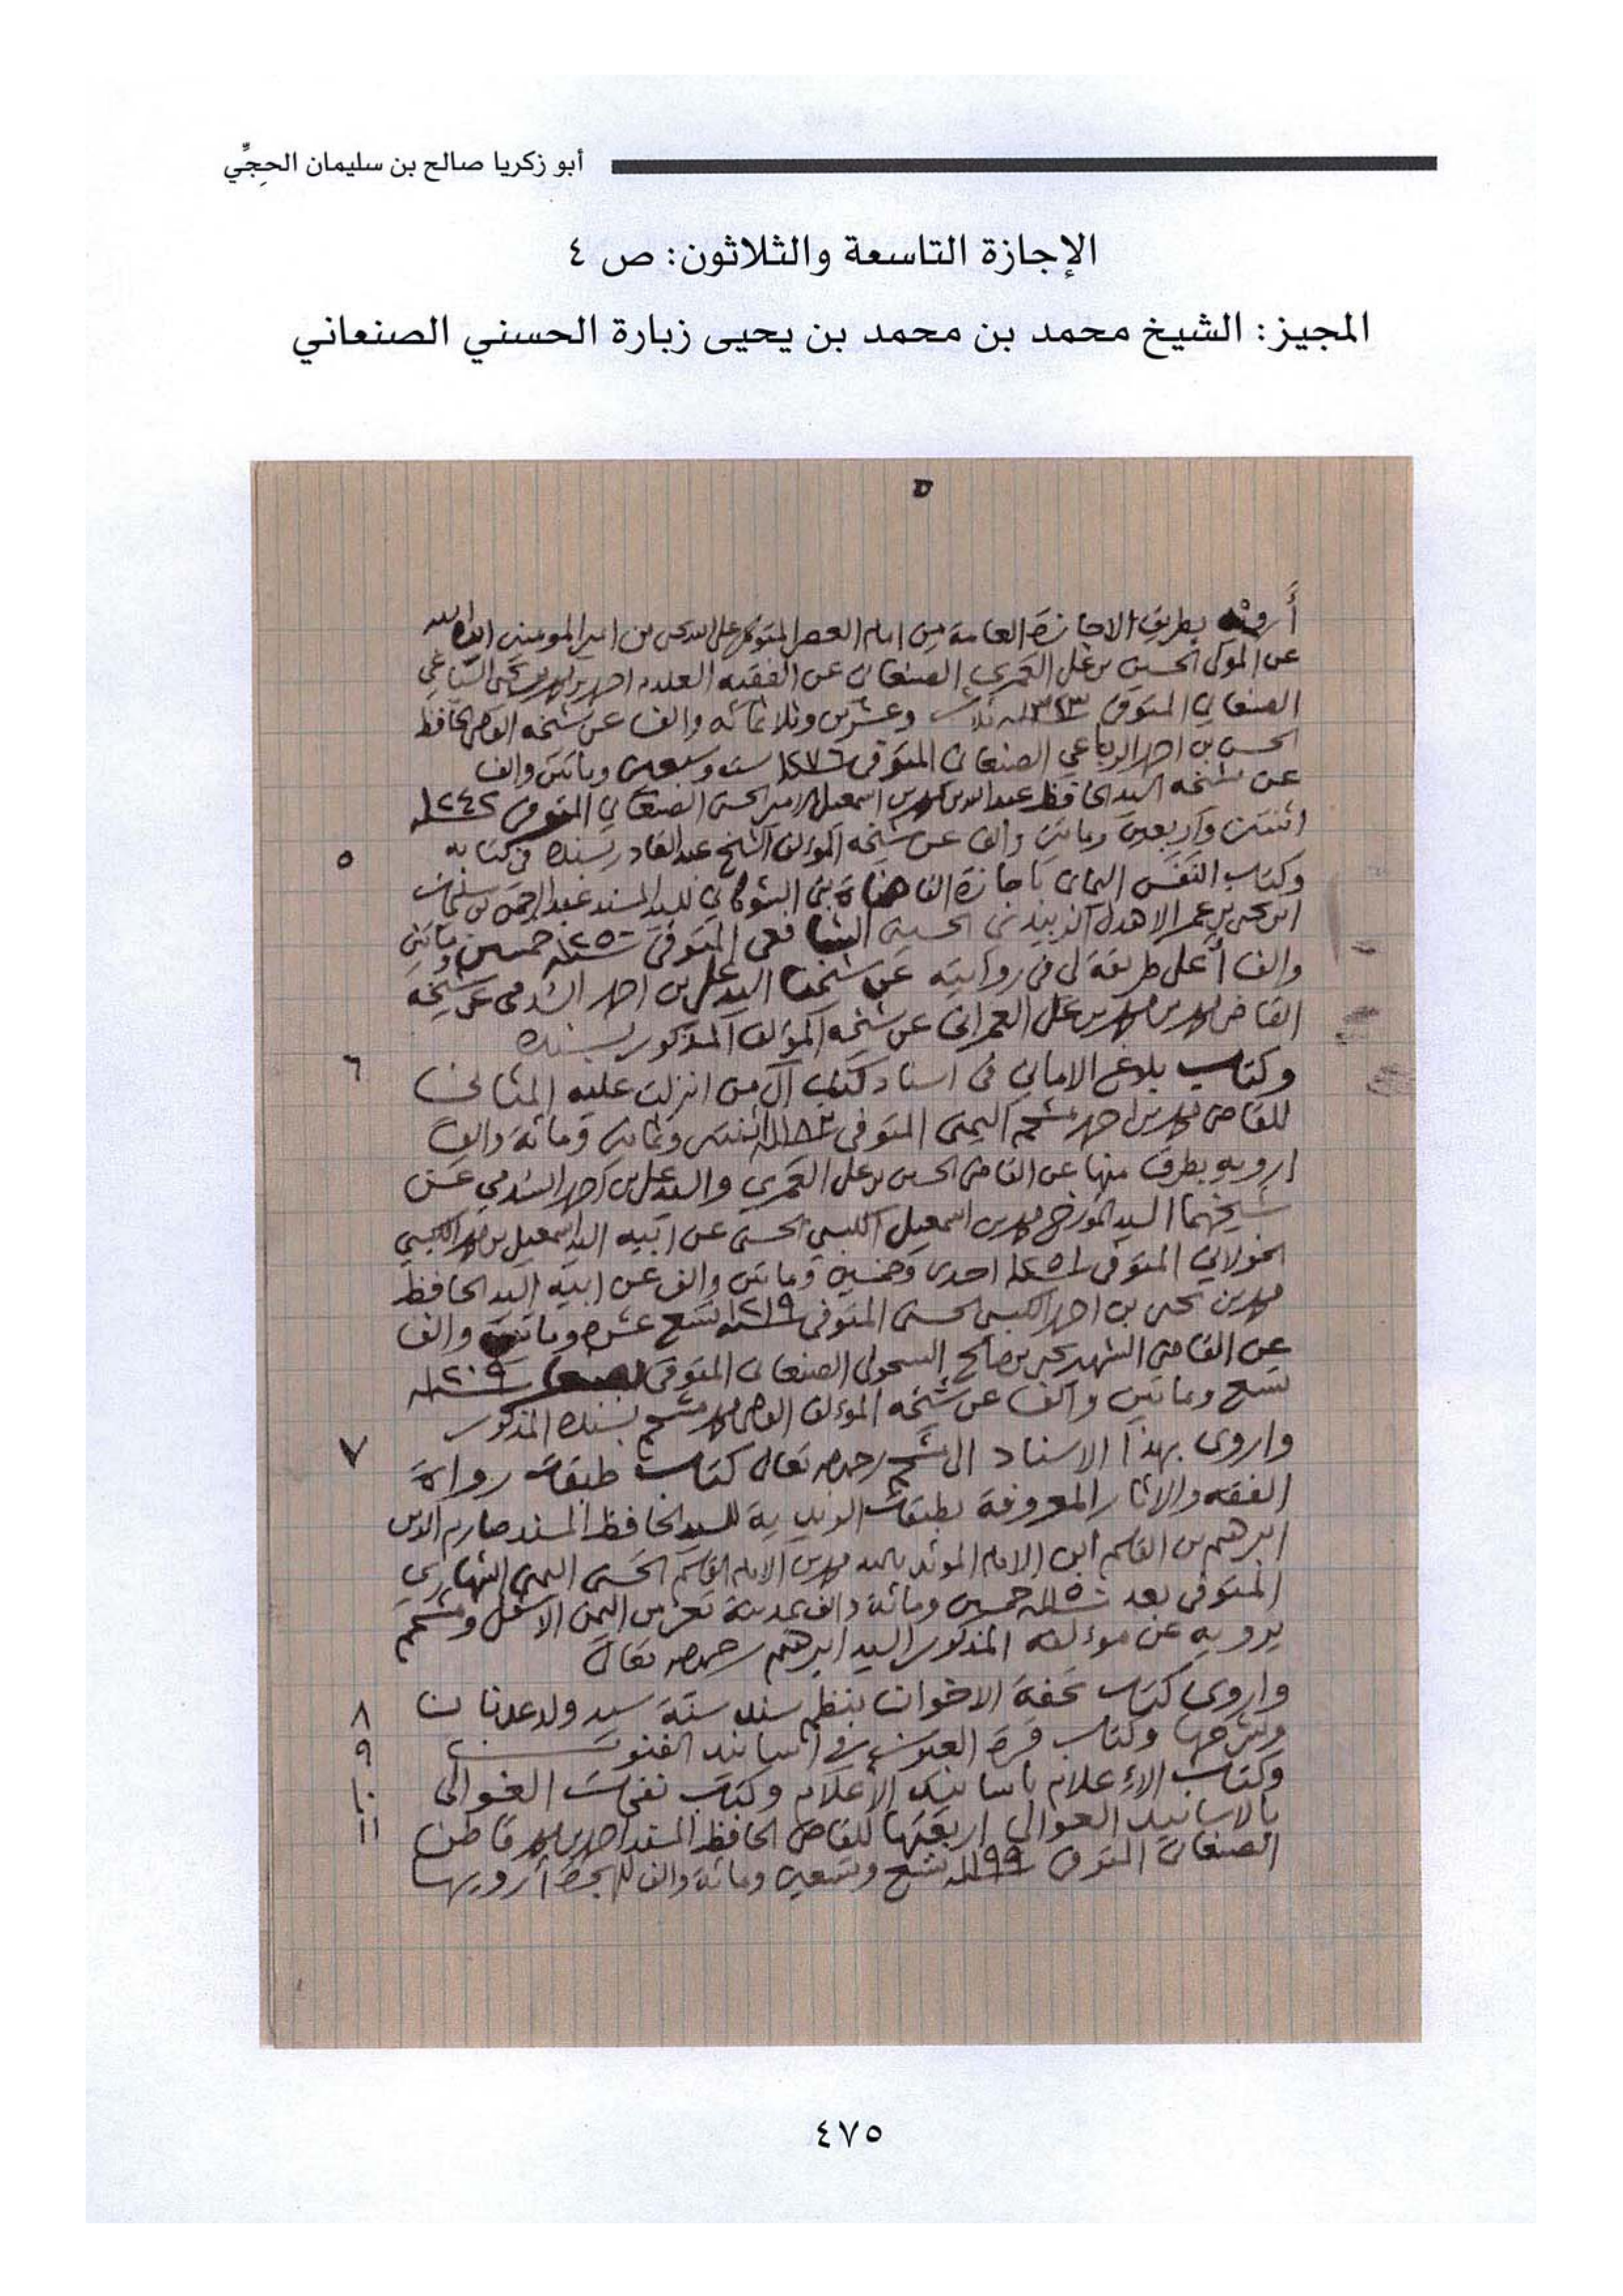 أبو زكريا صالح بن سليمان الحجِّي
الإجازة التاسعة والثلاثون: ص ٤
المجيز: الشيخ محمد بن محمد بن يحيى زبارة الحسني الصنعاني
٥
أرويه بطريق الاجازة العامة من امام العصر المتوكل على الله يحيى بن امير المومنين ايده الله
عن المولى الحسين بن علي العمري الصنعاني عن الفقيه العلامة احمد بن محمد بن يحيى السياغي
الصنعاني المتوفى ١٣٢٣ ثلاث وعشرين وثلاثمائه والف عن شيخه القاضي الحافظ
الحسن بن احمد الرباعي الصنعاني المتوفى ١٢٧٦ ست وسبعين وماتين والف
عن شيخه السيد الحافظ عبد الله بن محمد بن اسمعيل الامير الحسني الصنعاني المتوفى ١٢٤٢
اثنتين واربعين وماتين والف عن شيخه المؤلف الشيخ عبد القادر بسنده في كتابه
٥
وكتاب النفس اليماني باجازة القضاة بني الشوكاني للسيد المسند عبد الرحمن بن سليمان
ابن يحيى بن عمر الاهدل الزبيدي الحسيني الشافعي المتوفى ١٢٥٠ خمسين وماتين
والف أعلى طريقة لي في روايته عن شيخنا السيد علي بن احمد السدمي عن شيخه
القاضي محمد بن محمد بن علي العمراني عن شيخه المؤلف المذكور بسنده
٦
وكتاب بلاغ الاماني في اسناد كتب آل من انزلت عليه المثاني
للقاضي محمد بن احمد مشحم اليمني المتوفى ١١٨٢ اثنتين وثمانين ومائة والف
ارويه بطرق منها عن القاضي الحسين بن علي العمري والسيد علي بن احمد السدمي عن
شيخهما السيد المؤرخ محمد بن اسمعيل الكبسي الحسني عن ابيه السيد اسمعيل بن محمد الكبسي
الخولاني المتوفى ١٢٥١ احدى وخمسين وماتين والف عن ابيه السيد الحافظ
محمد بن يحيى بن احمد الكبسي الحسني المتوفى ١٢١٩ تسع عشره وماتين والف
عن القاضي الشهير يحيى بن صالح السحولي الصنعاني المتوفى بصنعا ١٢٠٩
تسع وماتين والف عن شيخه المؤلف القاضي محمد مشحم بسنده المذكور
٧
واروى بهذا الاسناد الى مشحم رحمه الله تعالى كتاب طبقات رواة
الفقه والاثار المعروفة بطبقات الزيدية للسيد الحافظ المسند صارم الدين
ابرهيم بن القاسم ابن الامام المؤيد بالله محمد بن الامام القاسم الحسني اليمني الشهاري
المتوفى بعد ١١٥٠ خمسين ومائة والف بمدينة تعز من اليمن الاسفل ومشحم
يرويه عن مؤلفه المذكور السيد ابرهيم رحمه الله تعالى
٨
واروى كتاب تحفة الاخوان بنظم سند سنة سيد ولد عدنان
٩
وشرحها وكتاب قرة العيون في اسانيد الفنون
١٠
وكتاب الاعلام باسانيد الأعلام وكتاب نفحات الغوالي
١١
بالاسانيد العوالي اربعتها للقاضي الحافظ المسند احمد بن محمد قاطن
الصنعاني المتوفى ١١٩٩ تسع وتسعين ومائة والف أرويها
٤٧٥